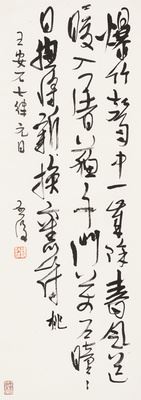 爆竹聲中一歲除春風送
暖入屠蘇千門萬戶曈々
日總把新換舊符桃
王安石七律元日